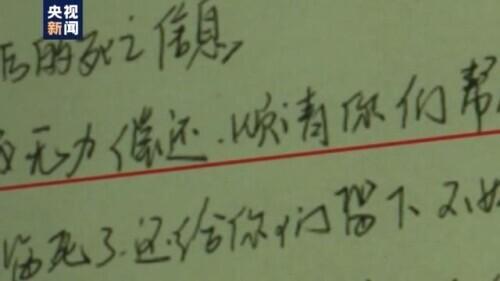 央视
新闻
后的死亡信息
无力偿还.烦请你们帮
临死了.还给你们留下不好